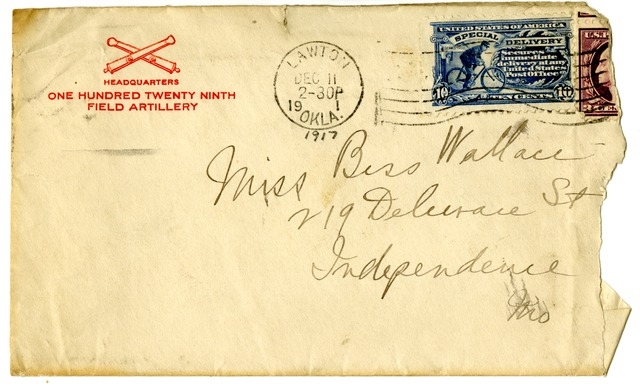 HEADQUARTERS
ONE HUNDRED TWENTY NINTH
FIELD ARTILLERY
LAWTON
DEC 11
2-30P
19 1
OKLA.
1917
UNITED STATES OF AMERICA
SPECIAL DELIVERY
Secures
immediate
delivery at any
United States
Post Office
10 TEN CENTS 10
U.S.
Miss Bess Wallace
219 Delaware St
Independence
Mo